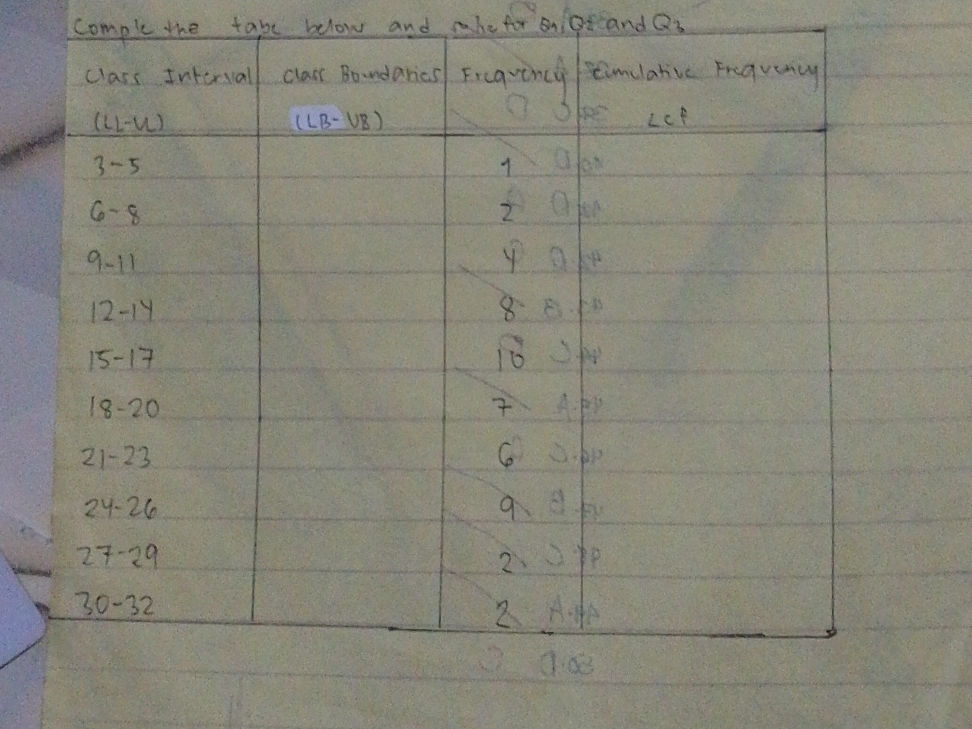 Comple the tabe below and solve for Q1, Q2 and Q3
Class Interval Class Boundaries Frequency Cumulative Frequency
(LL-UL) (LB-UB) <CF
3-5 1
6-8 2
9-11 4
12-14 8
15-17 10
18-20 7
21-23 6
24-26 9
27-29 2
30-32 2